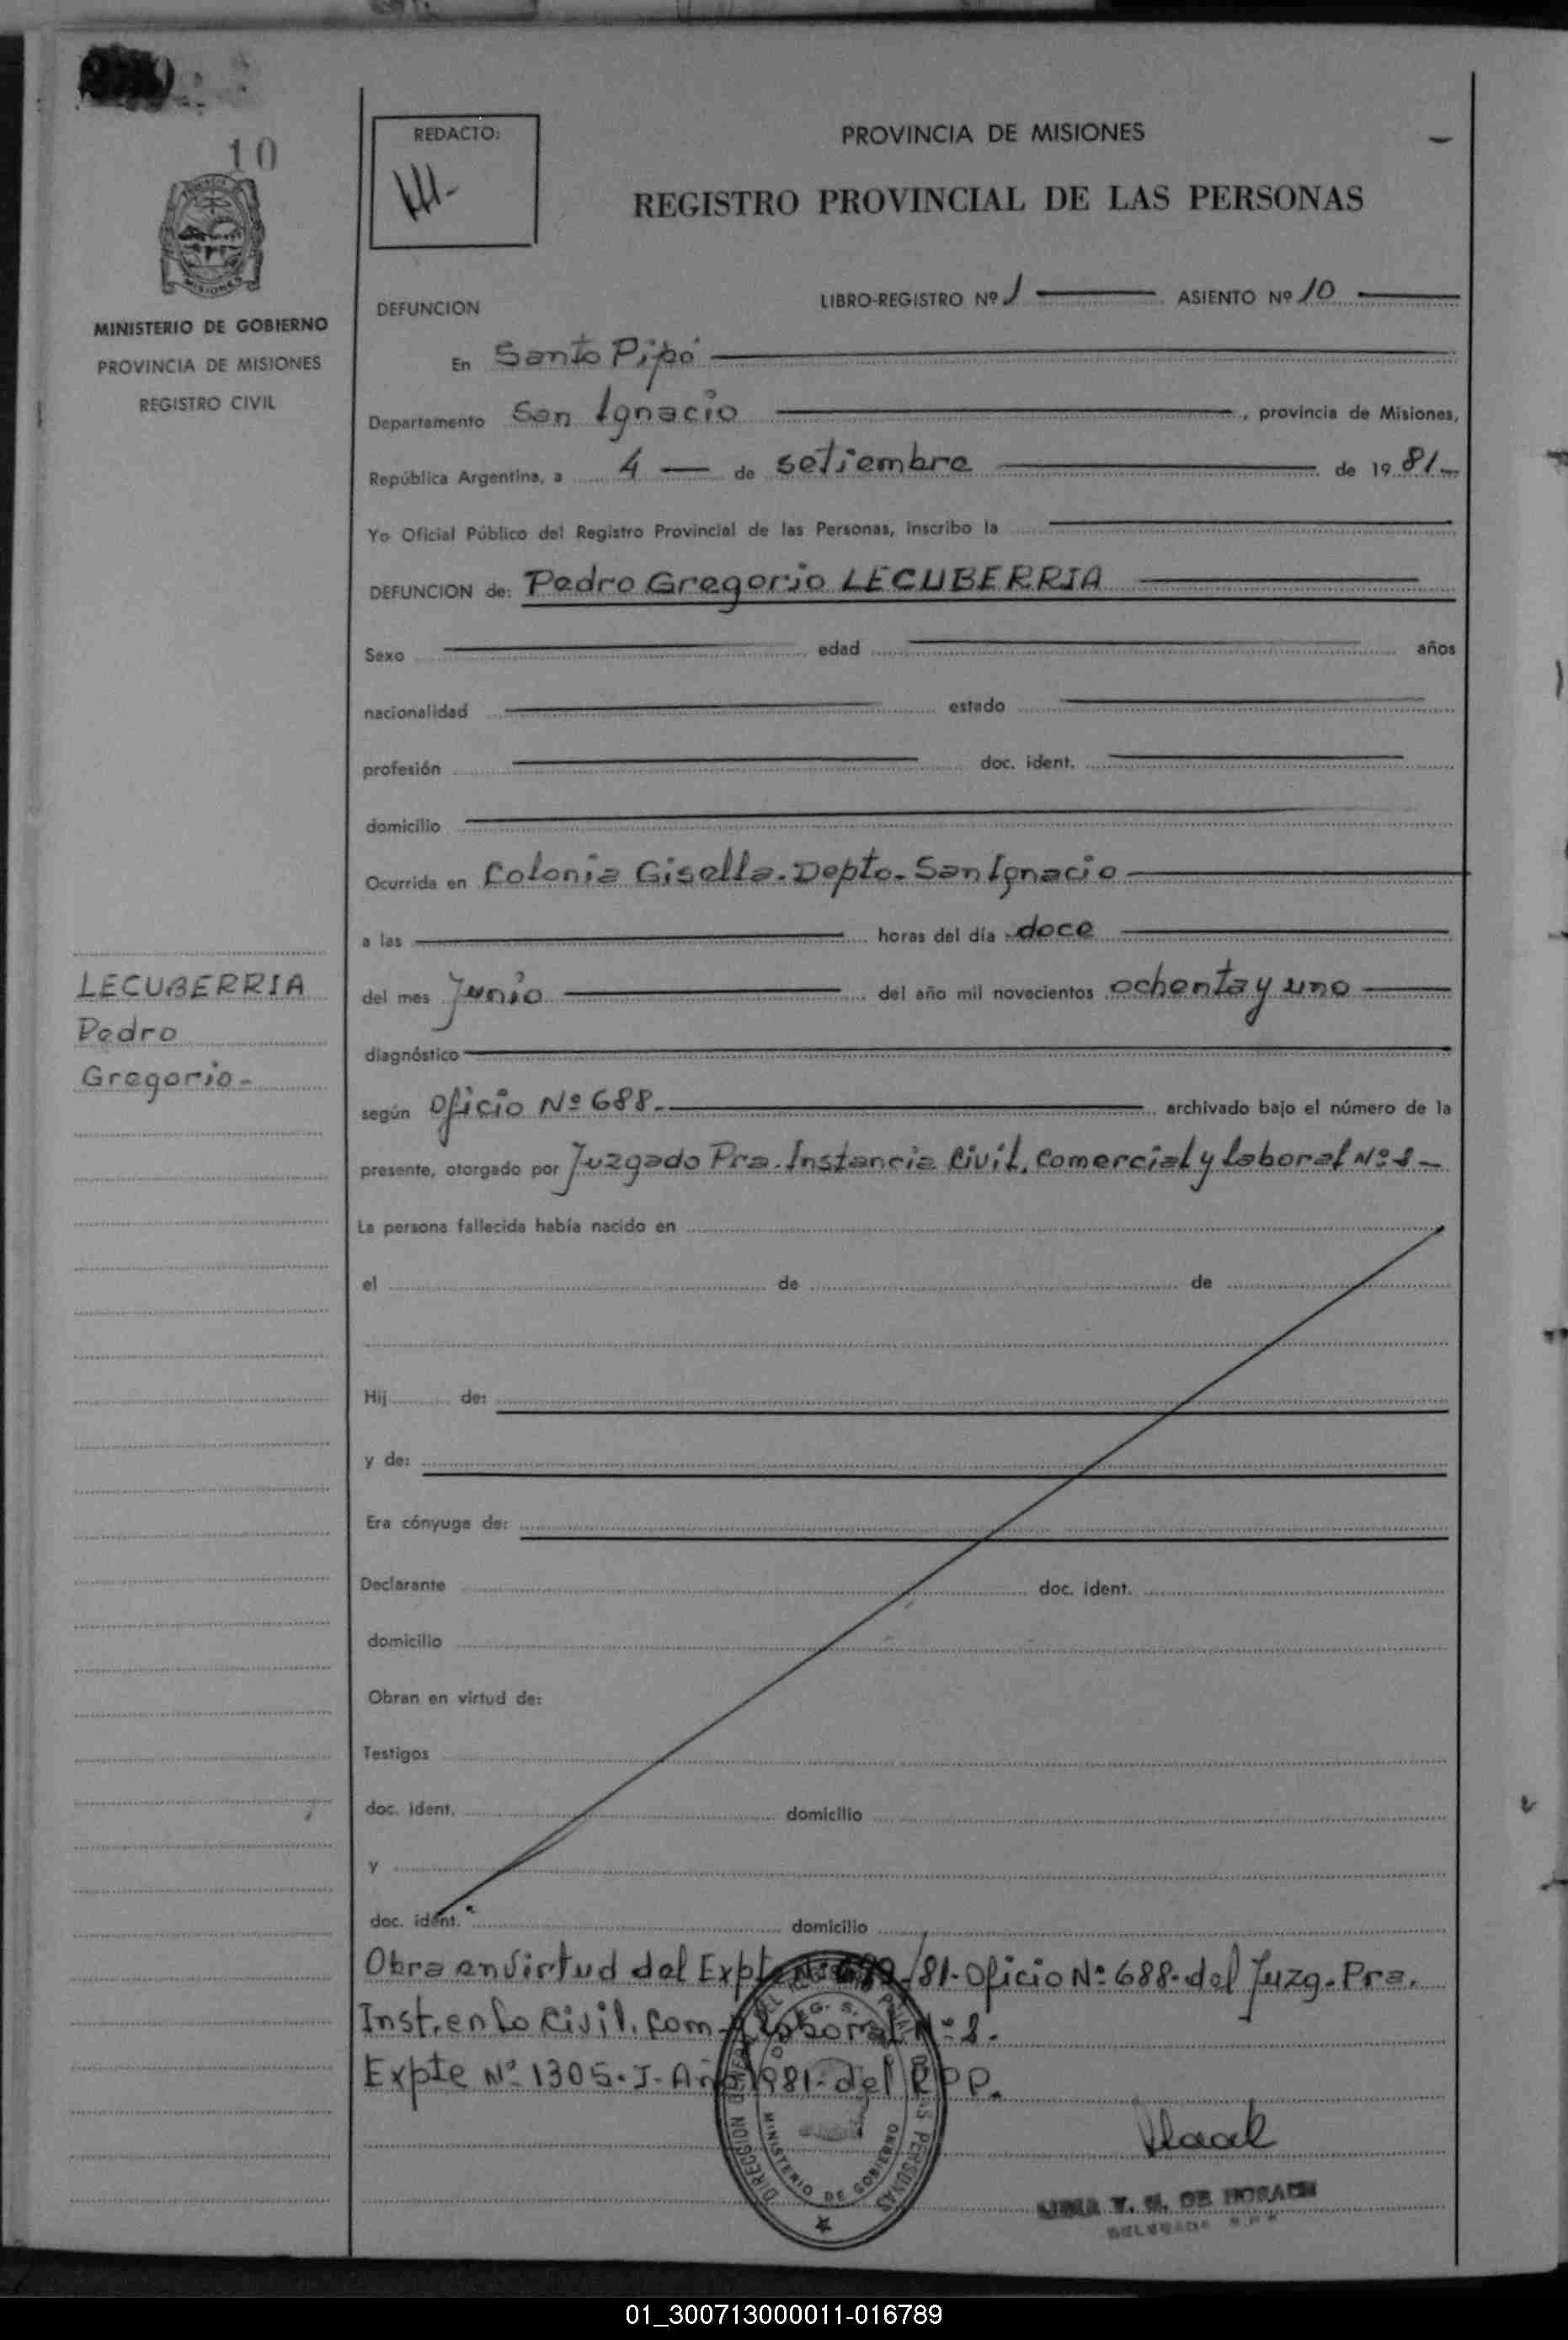 10
REDACTO:
PROVINCIA DE MISIONES
REGISTRO PROVINCIAL DE LAS PERSONAS
MISIONES
MINISTERIO DE GOBIERNO
PROVINCIA DE MISIONES
REGISTRO CIVIL
DEFUNCION LIBRO-REGISTRO Nº 1 ASIENTO Nº 10
En Santo Pipó
Departamento San Ignacio, provincia de Misiones,
República Argentina, a 4 de setiembre de 19 81
Yo Oficial Público del Registro Provincial de las Personas, inscribo la
DEFUNCION de: Pedro Gregorio LECUBERRIA
Sexo edad años
nacionalidad estado
profesión doc. ident.
domicilio
Ocurrida en Colonia Gisella. Depto. San Ignacio
a las horas del día doce
LECUBERRIA
Pedro
Gregorio-
del mes Junio del año mil novecientos ochenta y uno
diagnóstico
según Oficio Nº 688. archivado bajo el número de la
presente, otorgado por Juzgado Pra. Instancia Civil, Comercial y laboral Nº
La persona fallecida había nacido en
el de de
Hij de:
y de:
Era cónyuge de:
Declarante doc. ident.
domicilio
Obran en virtud de:
Testigos
doc. ident. domicilio
y
doc. ident. domicilio
Obra en Virtud del Expte /81. Oficio Nº 688. del Juzg. Pra.
Inst. en lo Civil. Com. y laboral
Expte Nº 1305. J. Año 1981. del RPP.
DIRECCION GENERAL DEL PERSONAS
MINISTERIO DE GOBIERNO
DE HORACH
01_300713000011-016789